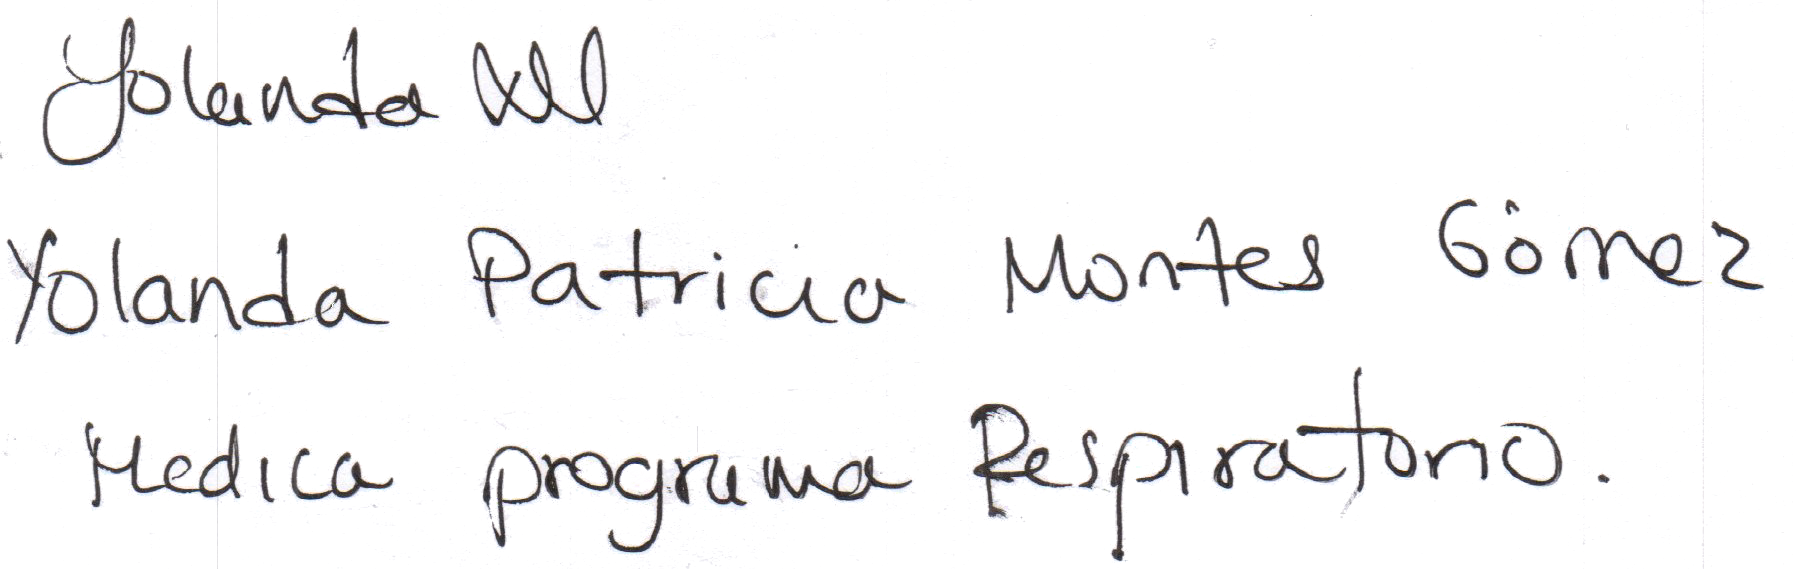 Yolanda
Yolanda Patricia Montes Gómez
Medica programa Respiratorio.